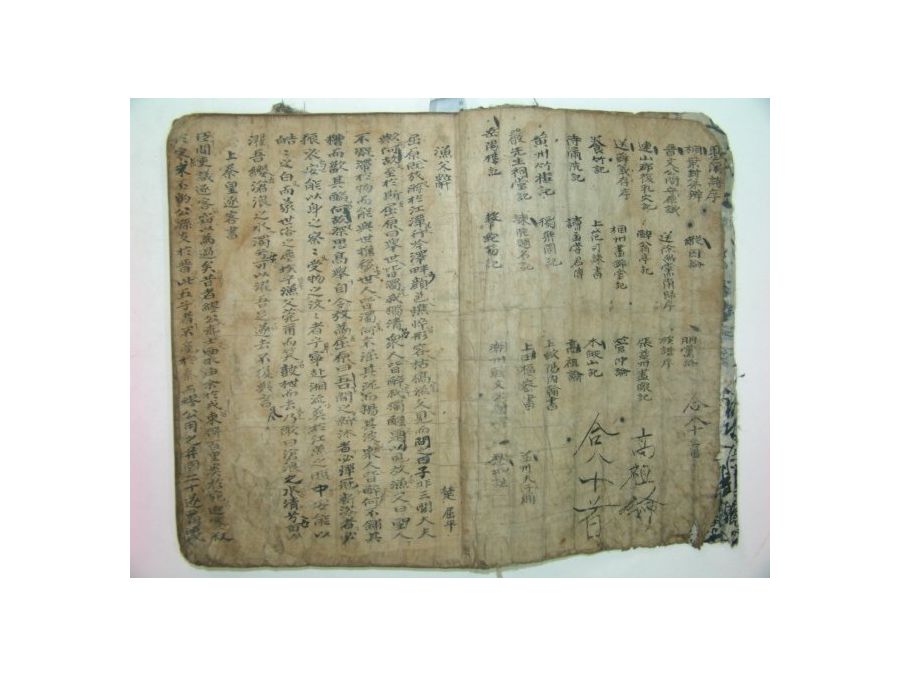 愚溪詩序
桐葉封弟辨 縱囚論 朋黨論
晋文公問守原議 送徐無黨南歸序 族譜序
連山郡復乳穴記 醉翁亭記 張益州畫像記
送薛存義序 相州晝錦堂記 管仲論 高祖論
養竹記 上范司諫書 木假山記
待漏院記 讀孟嘗君傳 高祖論 合八十首
黃州竹樓記 獨樂園記 上歐陽內翰書
嚴先生祠堂記 諫院題名記 上田樞密書
岳陽樓記 潮州韓文公廟碑
漁父辭 楚 屈平
屈原旣放游於江潭行吟澤畔顔色憔悴形容枯槁漁父見而問之曰子非三閭大夫
歟何故至於斯屈原曰擧世皆濁我獨淸衆人皆醉我獨醒是以見放漁父曰聖人
不凝滯於物而能與世推移世人皆濁何不淈其泥而揚其波衆人皆醉何不餔其
糟而歠其醨何故深思高擧自令放爲屈原曰吾聞之新沐者必彈冠新浴者必
振衣安能以身之察〻受物之汶〻者乎寧赴湘流葬於江魚之腹中安能以
皓〻之白而蒙世俗之塵埃乎漁父莞爾而笑鼓枻而去乃歌曰滄浪之水淸兮可以
濯吾纓滄浪之水濁兮可以濯吾足遂去不復與言
上秦皇逐客書
臣聞吏議逐客竊以爲過矣昔者繆公求士西取由余於戎東得百里奚於宛迎蹇叔
於宋來丕豹公孫支於晋此五子者不産於秦而繆公用之幷國二十遂覇西戎